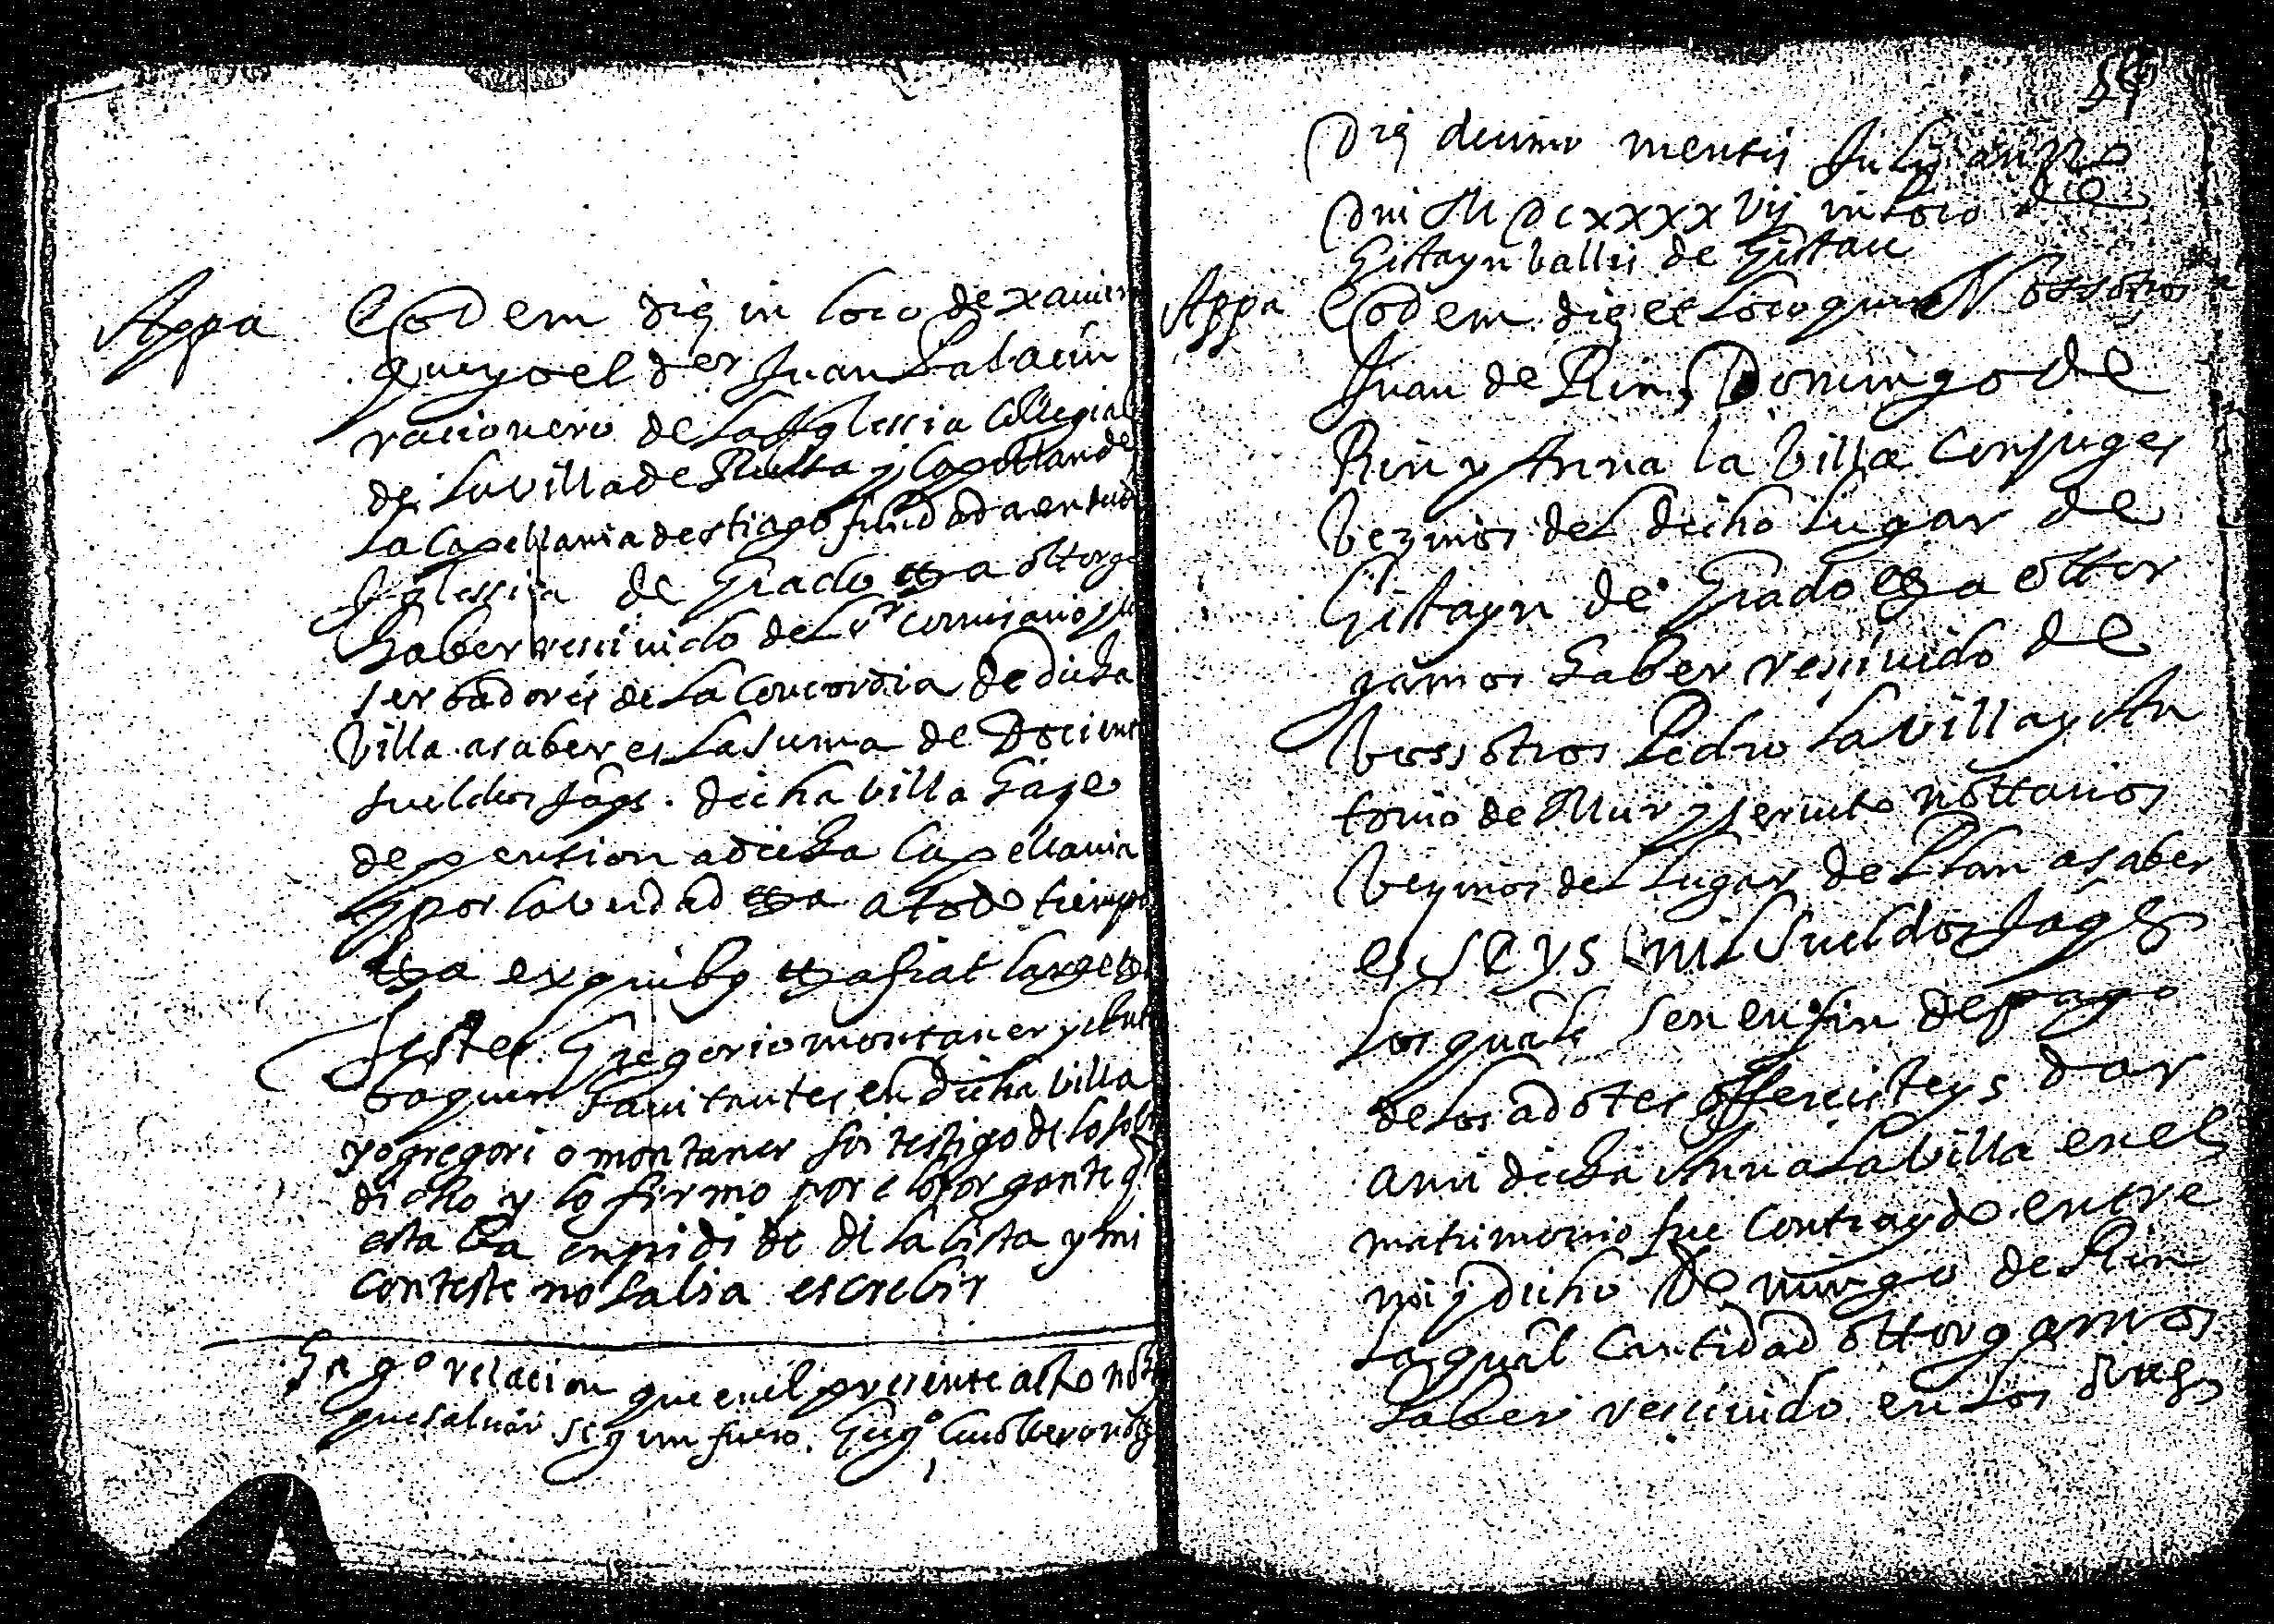 Appa
Eodem die in loco de xamin
que yo el dor Juan Palacin
racionero de la Iglessia Collegial
de la villa de y Capellan de
la Capellania de stiago fundada en su
Iglessia de Grado etta ottorgo
haber rescivido de los comisarios y
serbadores de la Concordia de dicha
Villa asaber es la suma de Docient
sueldos Jaqs. dicha villa haze
de pension a dicha Capellania
y por la verdad etta a todo tiempo
etta ex quibus etta fiat large etta
Testes Gregorio montaner y
baquer havitantes en dicha villa
yo gregori o montaner soi testigo de lo sobre
dicho y lo firmo por el otorgante q
esta ba enpidi do di la bista y mi
conteste no sabia escrebir
Hago relacion que en el presente acto no hay
que salvar segun fuero.
54
Die decimo mensis Julij anno
Dni M DCxxxxvij in loco de
Gistayn vallis de Gistau
Appa
Eodem die et loco que Nossotros
Juan de Rin, Domingo de
Rin y Anna la Villa Conjuges
Vezinos del dicho lugar de
Gistayn de Grado etta ottor
gamos haber rescivido de
Vossotros Pedro la villa y An
tonio de Mur y serueto nottarios
Vezinos del lugar de Plan asaber
es seys mil Sueldos Jaqs
los quales son en fin de pago
de los adotes offrecisteys dar
a mi dicha Anna la villa en el
matrimonio fue Contraydo entre
mi y dicho Domingo de Rin
la qual Cantidad ottorgamos
haber rescivido en los